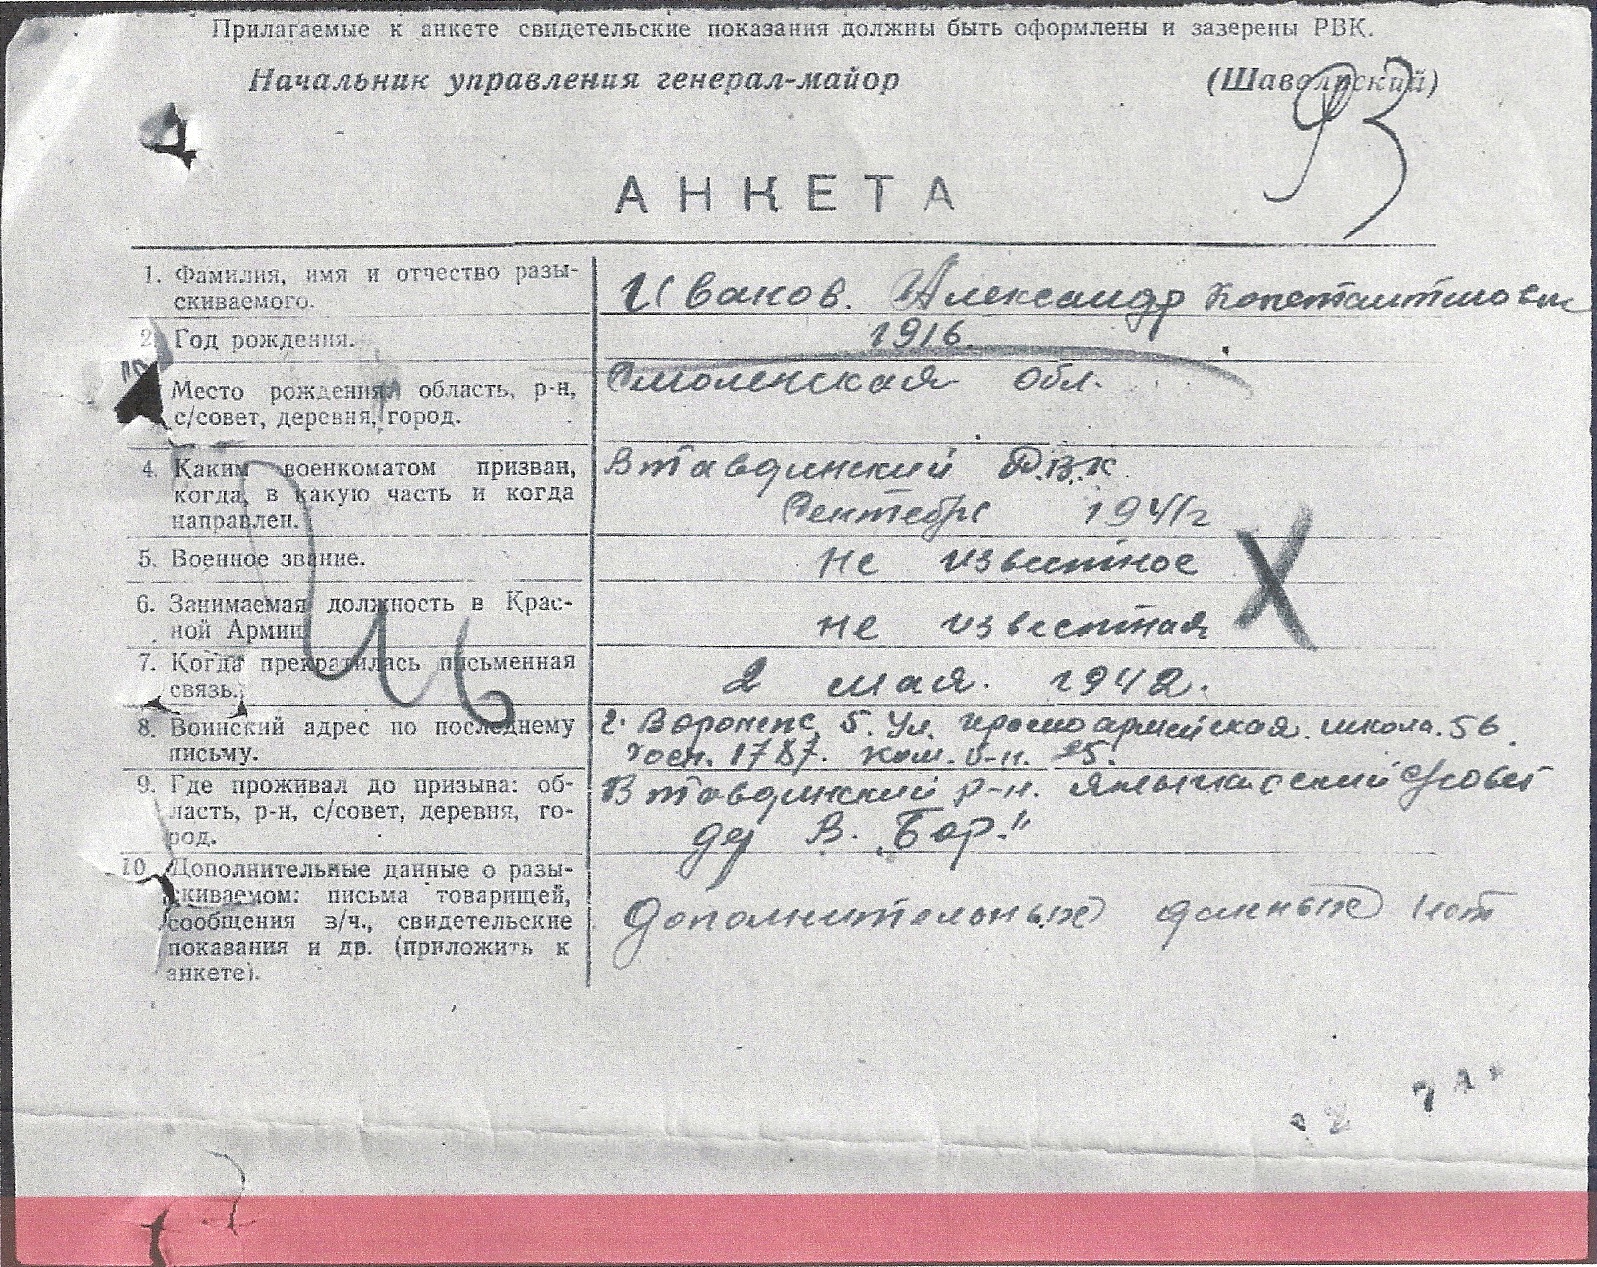 Прилагаемые к анкете свидетельские показания должны быть оформлены и зазерены РВК.
Начальник управления генерал-майор (Шаволрский)
93
АНКЕТА
1. Фамилия, имя и отчество разы-
скиваемого.
Иваков. Александр Константинович
2. Год рождения.
1916.
Место рождения область, р-н,
с/совет, деревня, город.
Смоленская обл.
4. Каким военкоматом призван,
когда, в какую часть и когда
направлен.
Втавдинский РВК
Сентебрь 1941г
5. Военное звание.
не известное
6. Занимаемая должность в Крас-
ной Армии
не известная
7. Когда прекратилась письменная
связь.
2 мая. 1942.
8. Воинский адрес по последнему
письму.
г. Воронеж, 5. Ул. армейская. школа. 56.
госп. 1787. ком. 25.
9. Где проживал до призыва: об-
ласть, р-н, с/совет, деревня, го-
род.
Втавдинский р-н. Совет
де В. Бор."
10 Дополнительные данные о разы-
скиваемом: письма товарищей,
сообщения з/ч., свидетельские
показания и др. (приложить к
анкете).
дополнительных данных нет